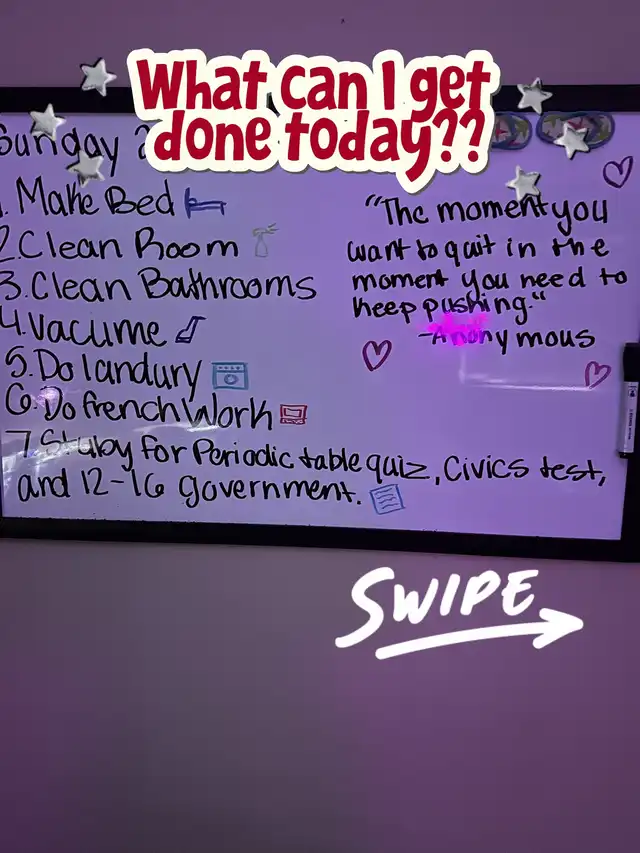 What can I get
done today??
Sunday
1. Make Bed
2. Clean Room
3. Clean Bathrooms
4. Vacume
5. Do landury
6. Do french Work
7. Study for Periodic table quiz, Civics test,
and 12-16 government.
"The moment you
want to quit in the
moment you need to
keep pushing."
-Anonymous
SWIPE